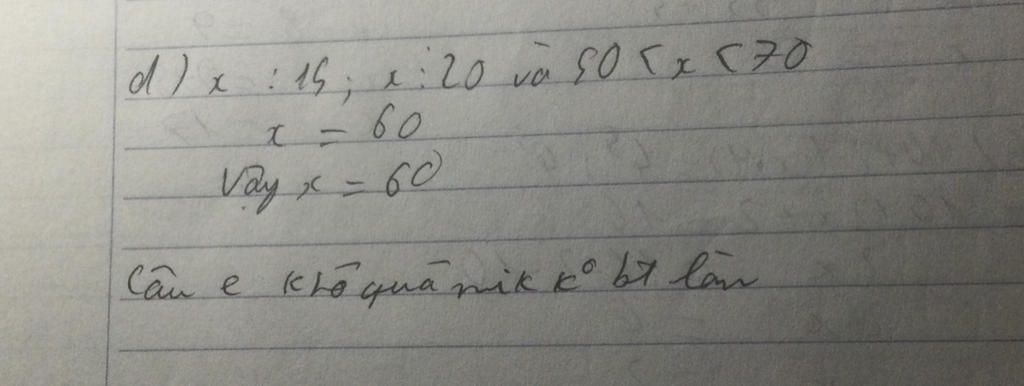 d) x ⋮ 15; x ⋮ 20 và 50 < x < 70
x = 60
Vậy x = 60
Câu e khó quá mik k° bt làm